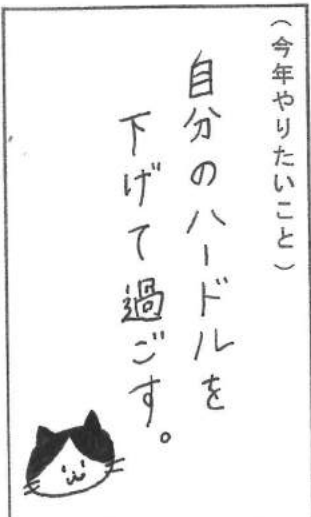 (今年やりたいこと)
自分のハードルを
下げて過ごす。